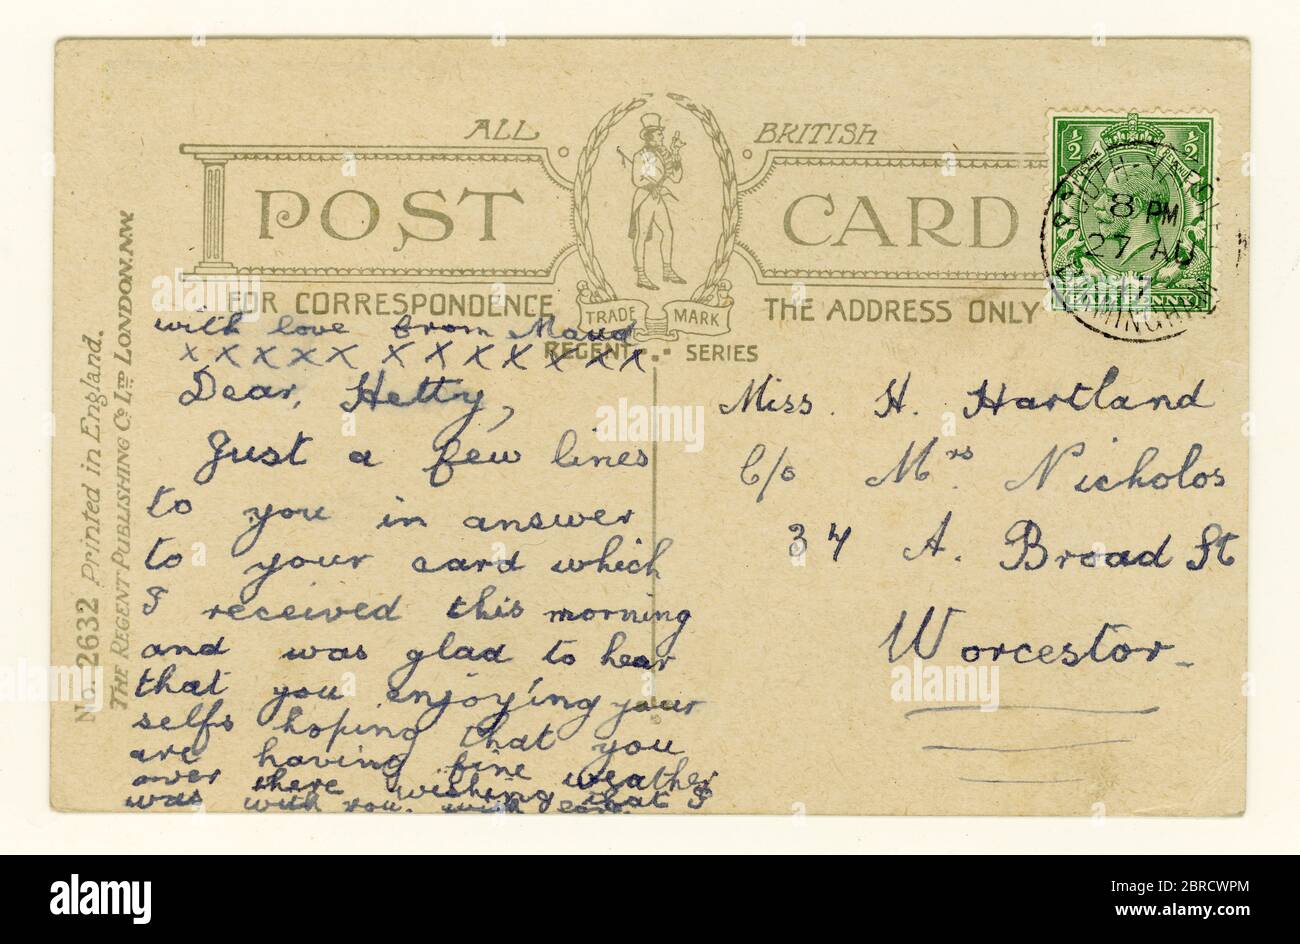 ALL BRITISH
POST CARD
FOR CORRESPONDENCE
TRADE MARK
THE ADDRESS ONLY
REGENT SERIES
No. 2632 Printed in England.
THE REGENT PUBLISHING Co LTD LONDON.N.W.
1/2 1/2
8 PM
27 AU
17
BIRMINGHAM
with love from Maud
x x x x x x x x x x x x
Dear, Hetty,
Just a few lines
to you in answer
to your card which
I received this morning
and was glad to hear
that you enjoying your
selfs hoping that you
are having fine weather
over there wishing that I
was with you. with
Miss. H. Hartland
C/o Mrs Nicholos
34 A. Broad St
Worcestor
alamy
Image ID: 2BRCWPM
www.alamy.com